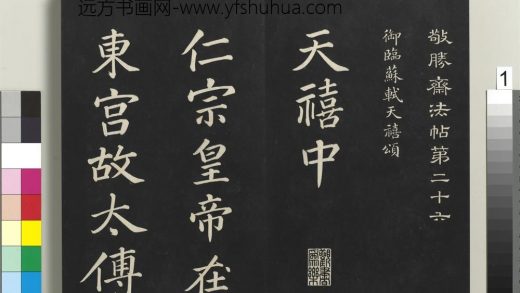 远方书画网-www.yfshuhua.com
敬勝齋法帖第二十六
御臨蘇軾天禧頌
天禧中
仁宗皇帝在
東宮故太傅
1